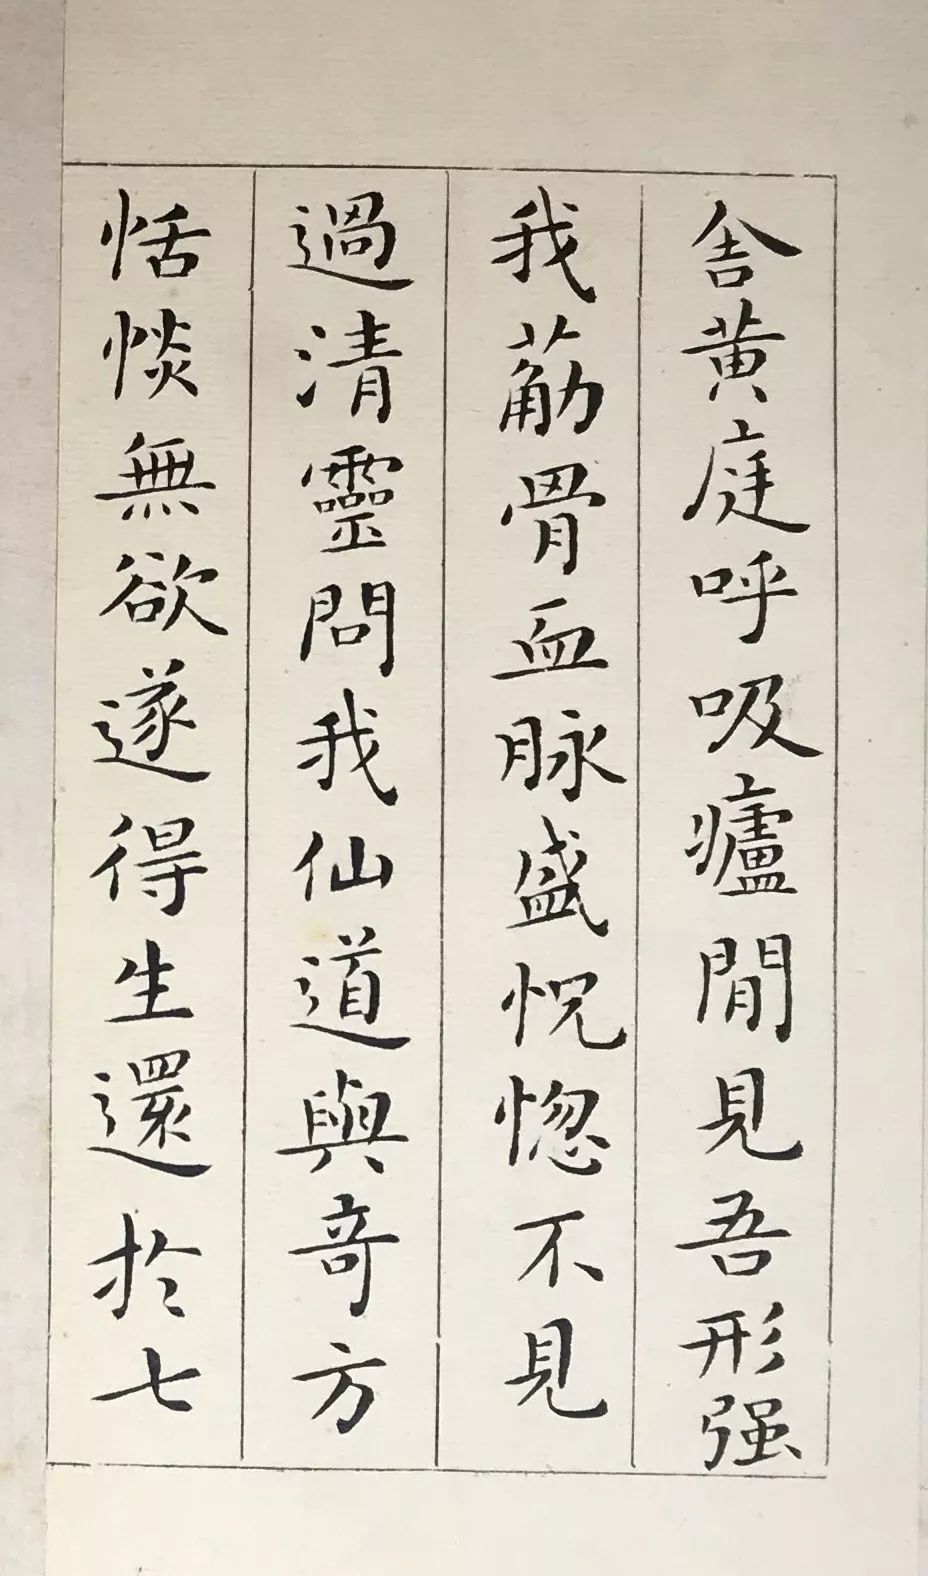 舍黄庭呼吸廬間見吾形强
我筋骨血脉盛怳惚不見
過清靈問我仙道與奇方
恬惔無欲遂得生還於七